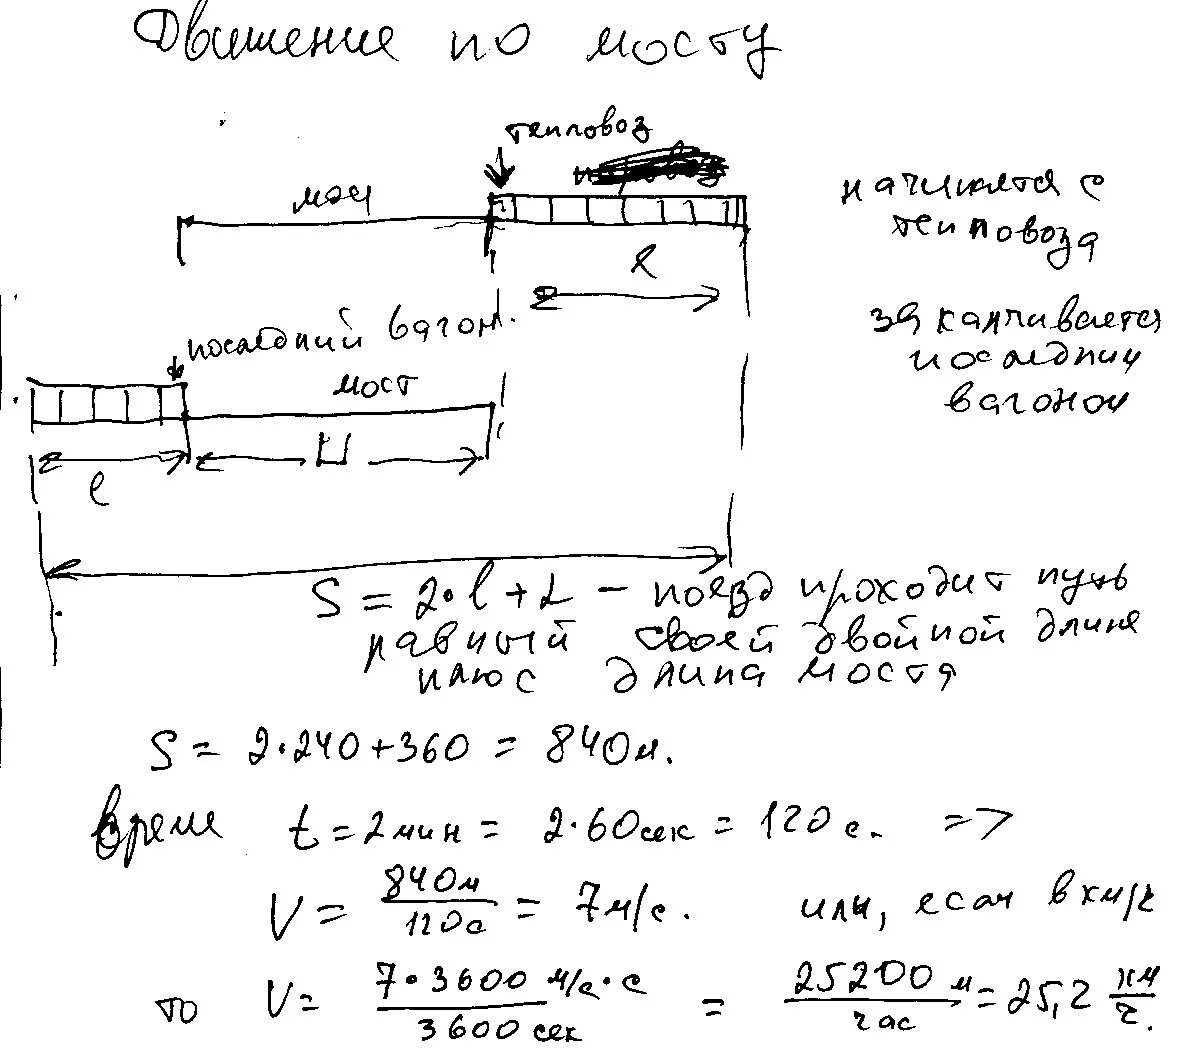 Движение по мосту
тепловоз
мост
начинается с
тепловоза
l
последний вагон.
заканчивается
последним
вагоном
мост
l
L
S = 2·l + L – поезд проходит путь
равный своей двойной длине
плюс длина моста
S = 2·240 + 360 = 840м.
Время t = 2 мин = 2·60сек = 120 с. =>
V = 840м / 120с = 7м/с. или, если в км/ч
то V = 7·3600 м/с·с / 3600 сек = 25200 м / час = 25,2 км / ч.